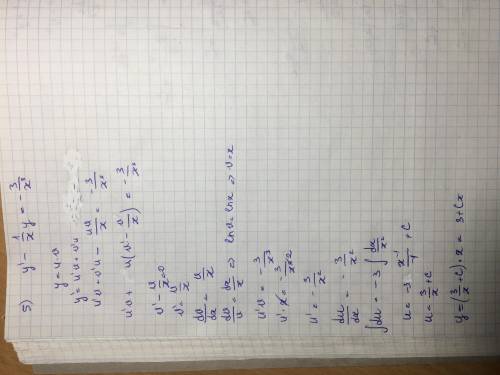 5) y' - 1/x y = - 3/x³
y = u·v
y' = u'v + v'u
u'v + v'u - uv/x = - 3/x³
u'v + u(v' - v/x) = - 3/x³
v' - v/x = 0
v' = v/x
dv/dx = v/x
dv/v = dx/x ⇒ ln v = ln x ⇒ v = x
u'v = - 3/x³
u' = - 3/x²
du/dx = - 3/x²
∫du = -3 ∫ dx/x²
u = 3/x + C
y = (3/x + C)·x = 3 + Cx